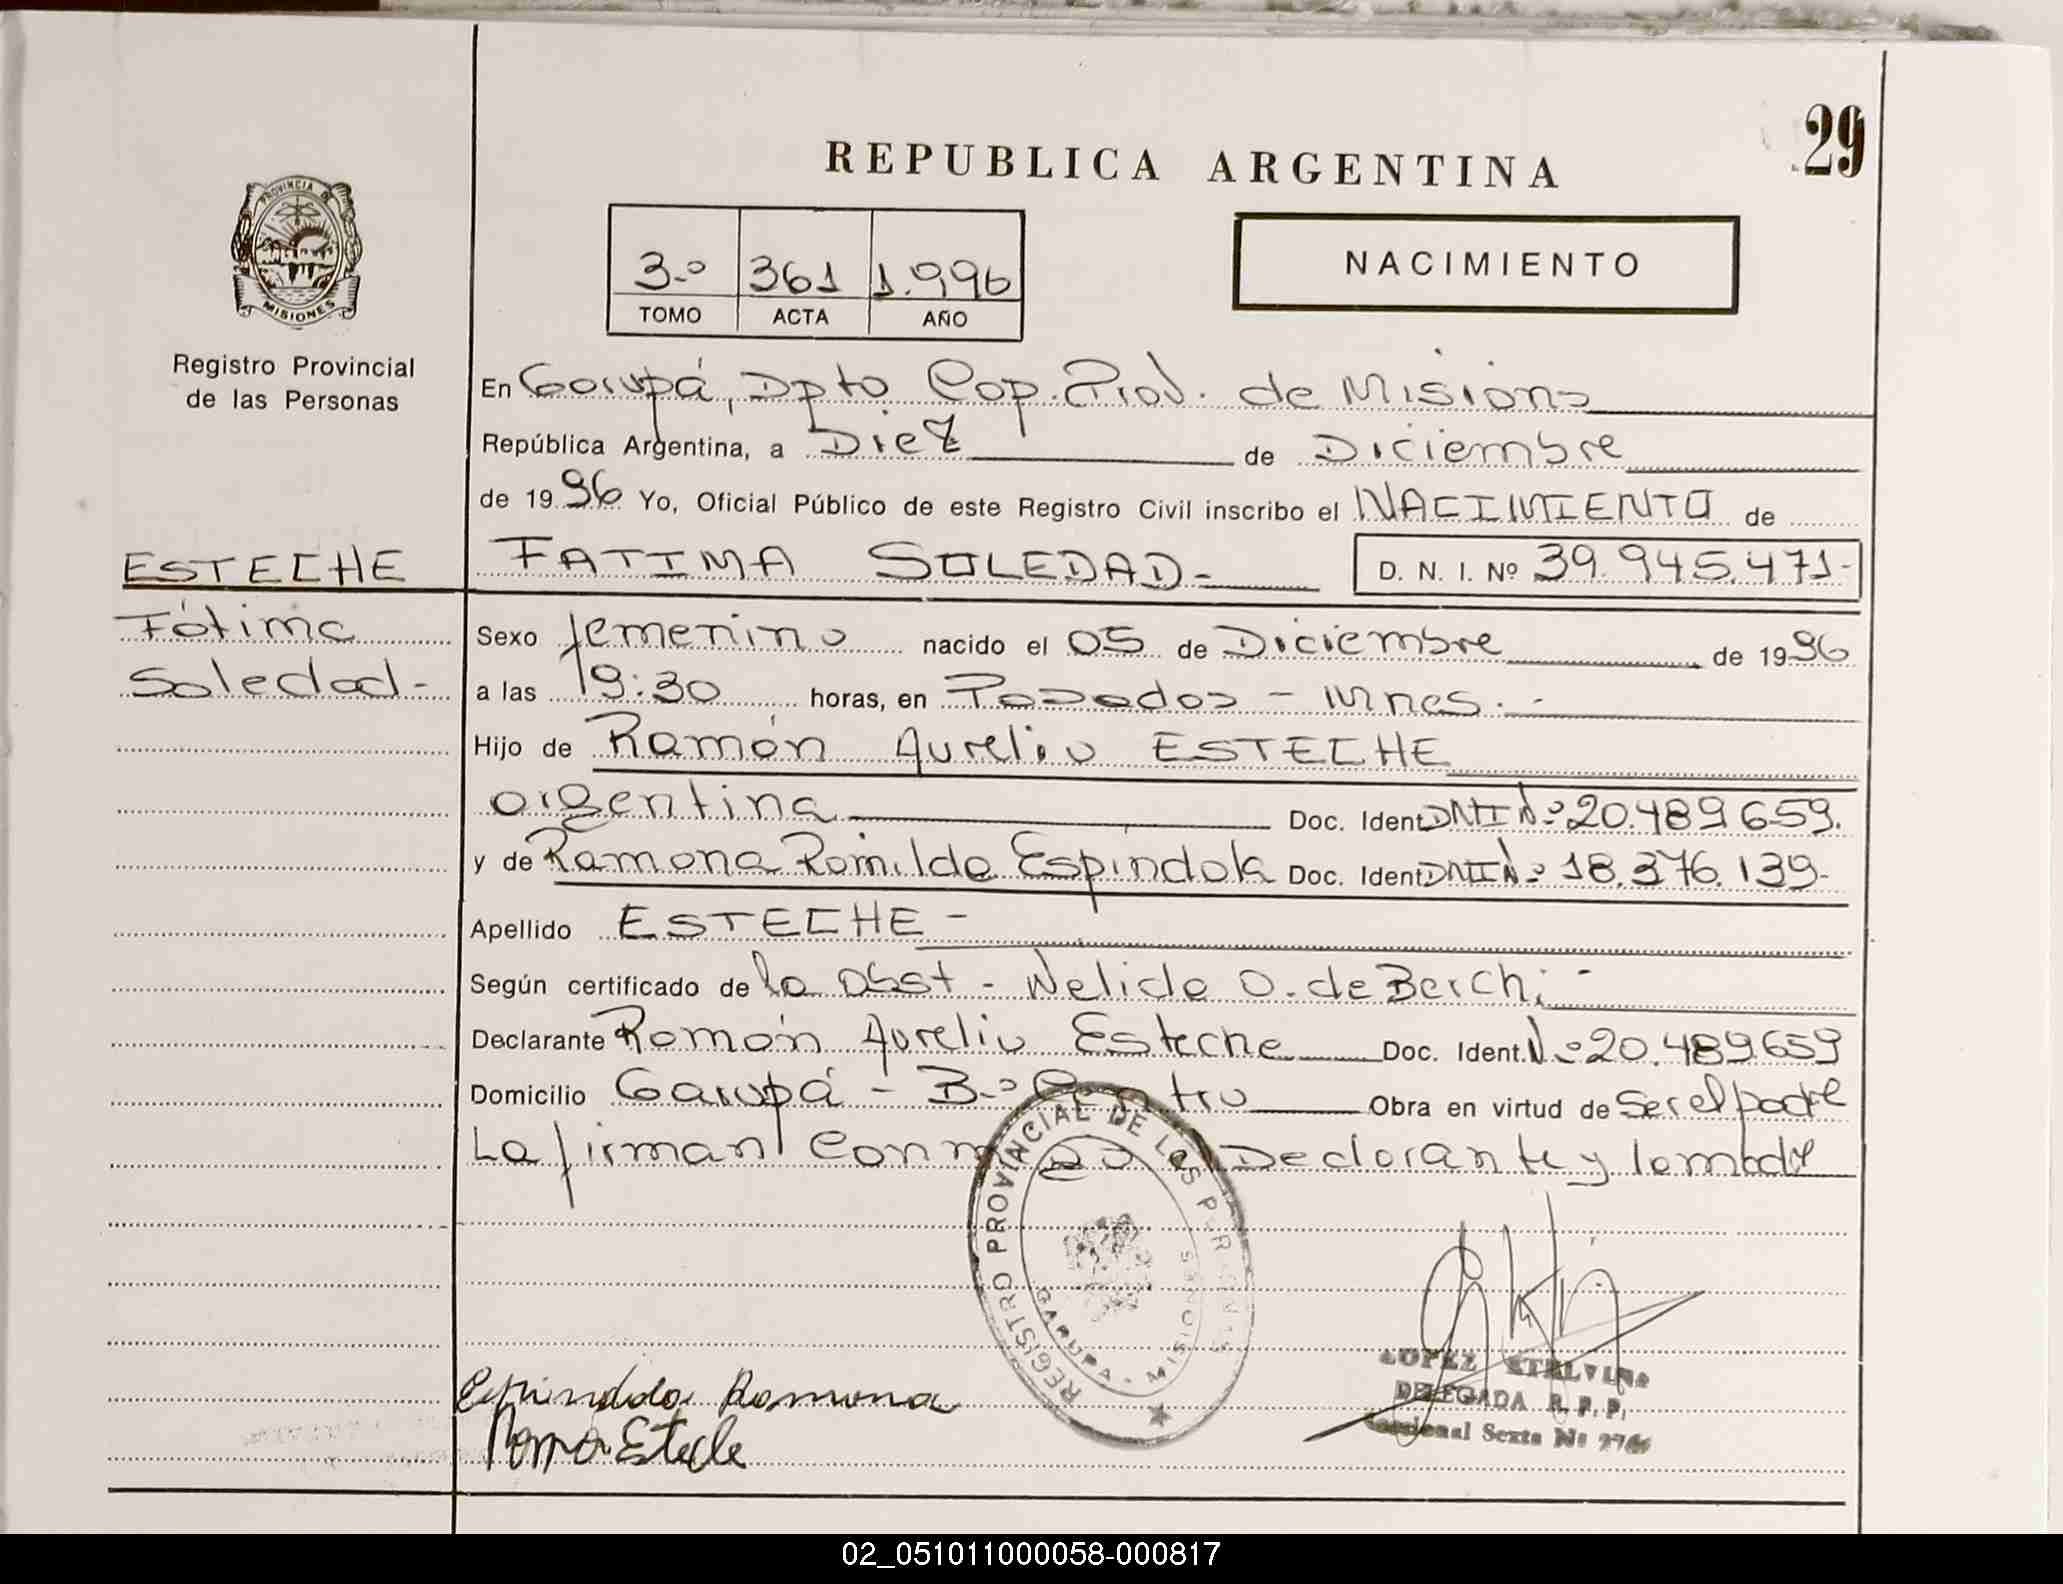 29
REPUBLICA ARGENTINA
PROVINCIA DE
MISIONES
Registro Provincial
de las Personas
3-º 361 1.996
TOMO ACTA AÑO
NACIMIENTO
En Garupá, Dpto. Cap. Prov. de Misiones
República Argentina, a Diez de Diciembre
de 1996 Yo, Oficial Público de este Registro Civil inscribo el NACIMIENTO de
ESTECHE FATIMA SOLEDAD- D. N. I. Nº 39.945.471-
Fátima
Soledad-
Sexo femenino nacido el 05 de Diciembre de 1996
a las 19:30 horas, en Posadas - Mnes.-
Hijo de Ramón Aurelio ESTECHE
argentina Doc. Ident. DNI Nº 20.489659.
y de Ramona Romilda Espindola Doc. Ident. DNI Nº 18.376.139-
Apellido ESTECHE-
Según certificado de la Obst - Nelida O. de Berchi-
Declarante Ramón Aurelio Esteche Doc. Ident. Nº 20.489659
Domicilio Garupá - Bº Centro Obra en virtud de Ser el padre
La firman Conmigo el Declarante y la madre
REGISTRO PROVINCIAL DE LAS PERSONAS
GARUPA - MISIONES
Espindola Ramona
Ramon Esteche
LOPEZ ETELVINA
DELEGADA R. P. P.
Seccional Sexta Nº
02_051011000058-000817